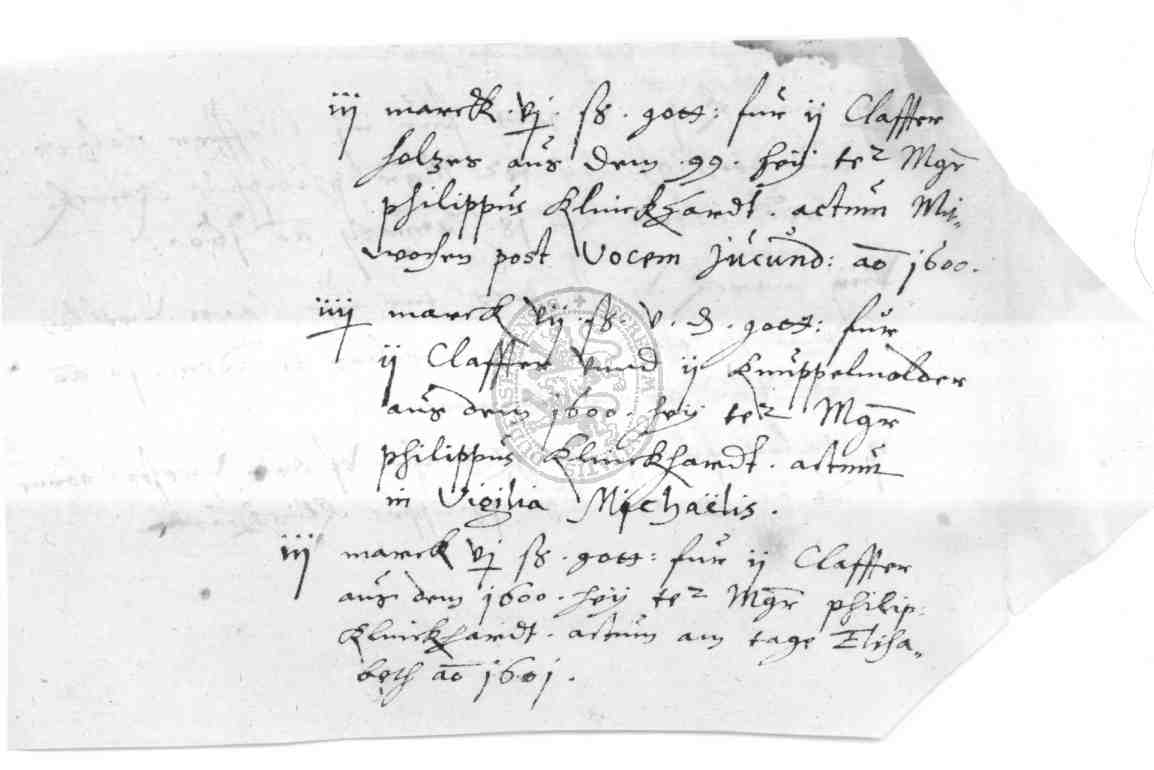 iij marckk . vj . ß . gott : fur ij Claffter
holtzes aus dem . 99 . heÿ te² Mgr
philippus Klinckhardt . actum Mi-
wochen post Vocem Jucund : ao 1600 .
iiij marck vij . ß . v . d . gott : fur
ij Claffter vnnd ij Knuppelmolder
aus dem 1600 . heÿ te² Mgr
philippus Klinckhardt . actum
in Vigilia Michaëlis .
iij marck vj ß . gott : fur ij Claffter
aus dem 1600 . heÿ te² Mgr philip :
Klinckhardt . actum am tage Elisa-
beth ao 1601 .